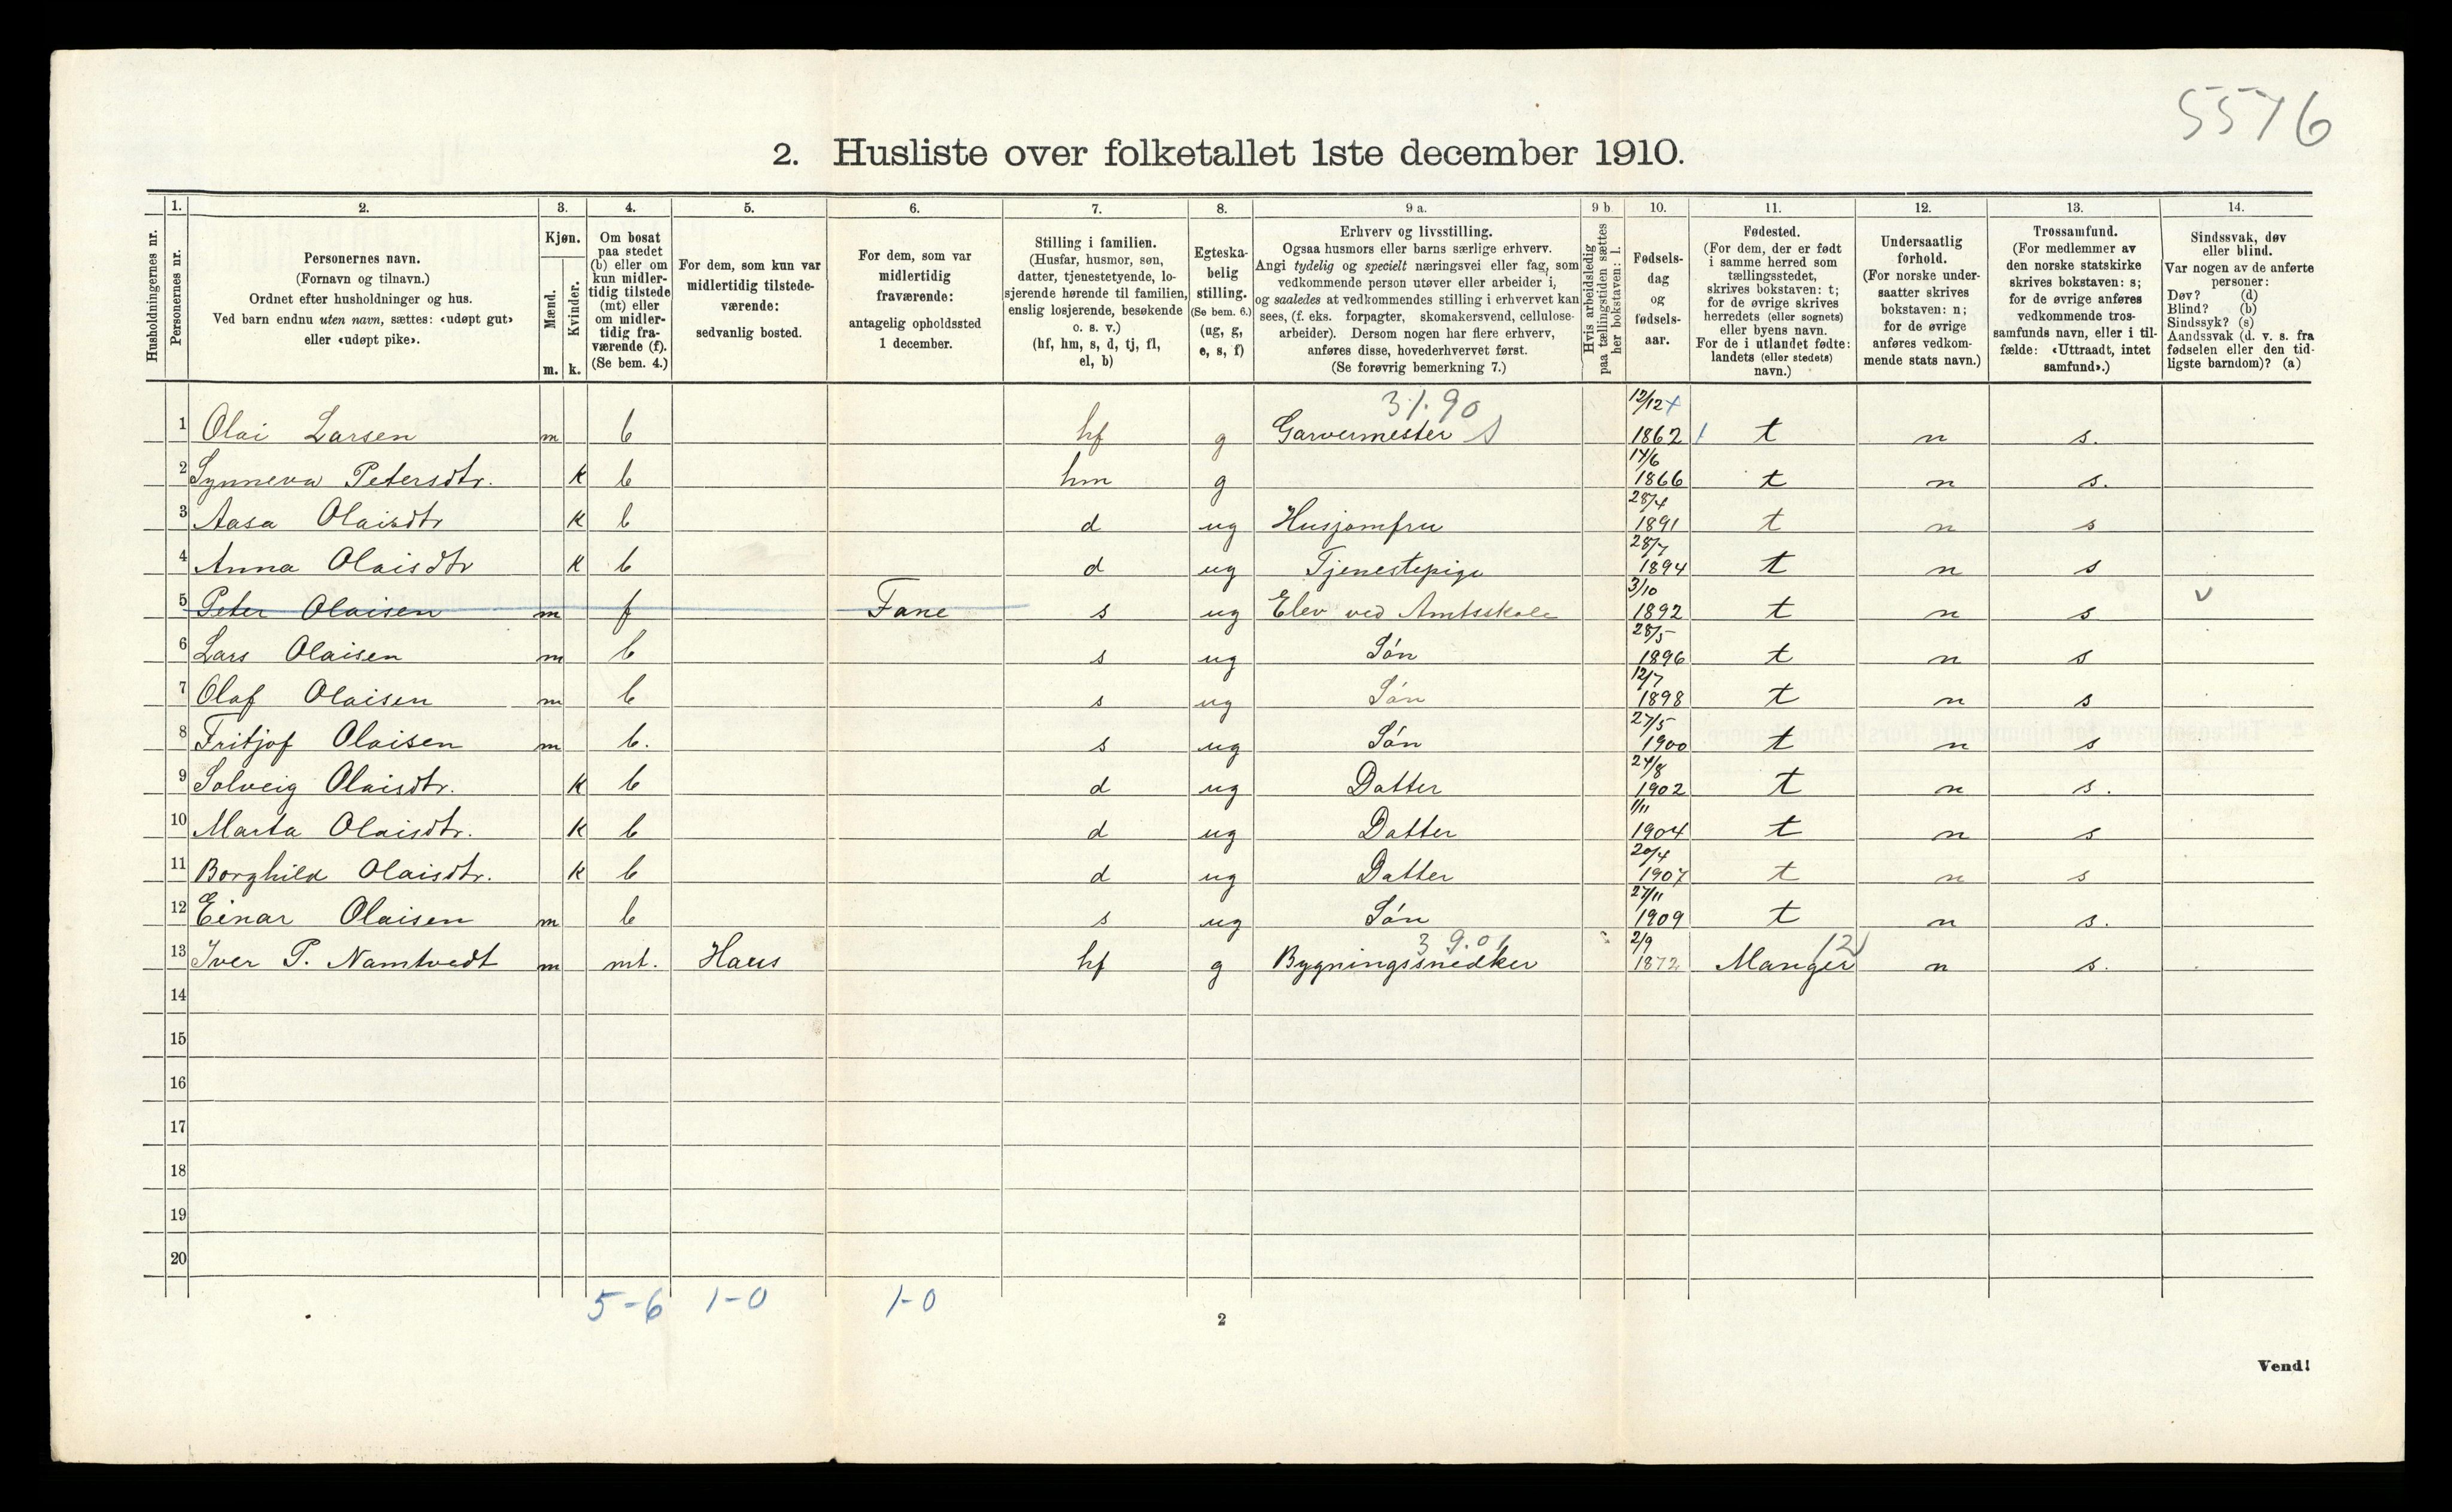 5576
2. Husliste over folketallet 1ste december 1910.
Husholdningernes nr.
1.
Personernes nr.
2.
Personernes navn.
(Fornavn og tilnavn.)
Ordnet efter husholdninger og hus.
Ved barn endnu uten navn, sættes: «udøpt gut»
eller «udøpt pike».
3.
Kjøn.
Mænd.
Kvinder.
m. k.
4.
Om bosat
paa stedet
(b) eller om
kun midler-
tidig tilstede
(mt) eller
om midler-
tidig fra-
værende (f).
(Se bem. 4.)
5.
For dem, som kun var
midlertidig tilstede-
værende:
sedvanlig bosted.
6.
For dem, som var
midlertidig
fraværende:
antagelig opholdssted
1 december.
7.
Stilling i familien.
(Husfar, husmor, søn,
datter, tjenestetyende, lo-
sjerende hørende til familien,
enslig losjerende, besøkende
o. s. v.)
(hf, hm, s, d, tj, fl,
el, b)
8.
Egteska-
belig
stilling.
(Se bem. 6.)
(ug, g,
e, s, f)
9 a.
Erhverv og livsstilling.
Ogsaa husmors eller barns særlige erhverv.
Angi tydelig og specielt næringsvei eller fag, som
vedkommende person utøver eller arbeider i,
og saaledes at vedkommendes stilling i erhvervet kan
sees, (f. eks. forpagter, skomakersvend, cellulose-
arbeider). Dersom nogen har flere erhverv,
anføres disse, hovederhvervet først.
(Se forøvrig bemerkning 7.)
9 b
Hvis arbeidsledig
paa tællingstiden sættes
her bokstaven: l.
10.
Fødsels-
dag
og
fødsels-
aar.
11.
Fødested.
(For dem, der er født
i samme herred som
tællingsstedet,
skrives bokstaven: t;
for de øvrige skrives
herredets (eller sognets)
eller byens navn.
For de i utlandet fødte:
landets (eller stedets)
navn.)
12.
Undersaatlig
forhold.
(For norske under-
saatter skrives
bokstaven: n;
for de øvrige
anføres vedkom-
mende stats navn.)
13.
Trossamfund.
(For medlemmer av
den norske statskirke
skrives bokstaven: s;
for de øvrige anføres
vedkommende tros-
samfunds navn, eller i til-
fælde: «Uttraadt, intet
samfund».)
14.
Sindssvak, døv
eller blind.
Var nogen av de anførte
personer:
Døv? (d)
Blind? (b)
Sindssyk? (s)
Aandssvak (d. v. s. fra
fødselen eller den tid-
ligste barndom)? (a)
31.90 12/12
1 Olai Larsen m b hf g Garvermester 1862 t n s.
14/6
2 Synneva Petersdtr. k b hm g 1866 t n s.
28/4
3 Aasa Olaisdtr k b d ug Husjomfru 1891 t n s
28/7
4 Anna Olaisdtr k b d ug Tjenestepige 1894 t n s
3/10
5 Peter Olaisen m f Fane s ug Elev ved Amtsskole 1892 t n s v
28/5
6 Lars Olaisen m b s ug Søn 1896 t n s
12/7
7 Olaf Olaisen m b s ug Søn 1898 t n s
27/5
8 Fritjof Olaisen m b. s ug Søn 1900 t n s
24/8
9 Solveig Olaisdtr. k b d ug Datter 1902 t n s.
1/11
10 Marta Olaisdtr. k b d ug Datter 1904 t n s
20/4
11 Borghild Olaisdtr. k b d ug Datter 1907 t n s
27/11
12 Einar Olaisen m b s ug Søn 1909 t n s.
39.01 2/9 12
13 Iver P. Namtvedt m mt. Haus hf g Bygningssnedker 1872 Manger n s.
14
15
16
17
18
19
20
5-6 1-0 1-0
2
Vend!